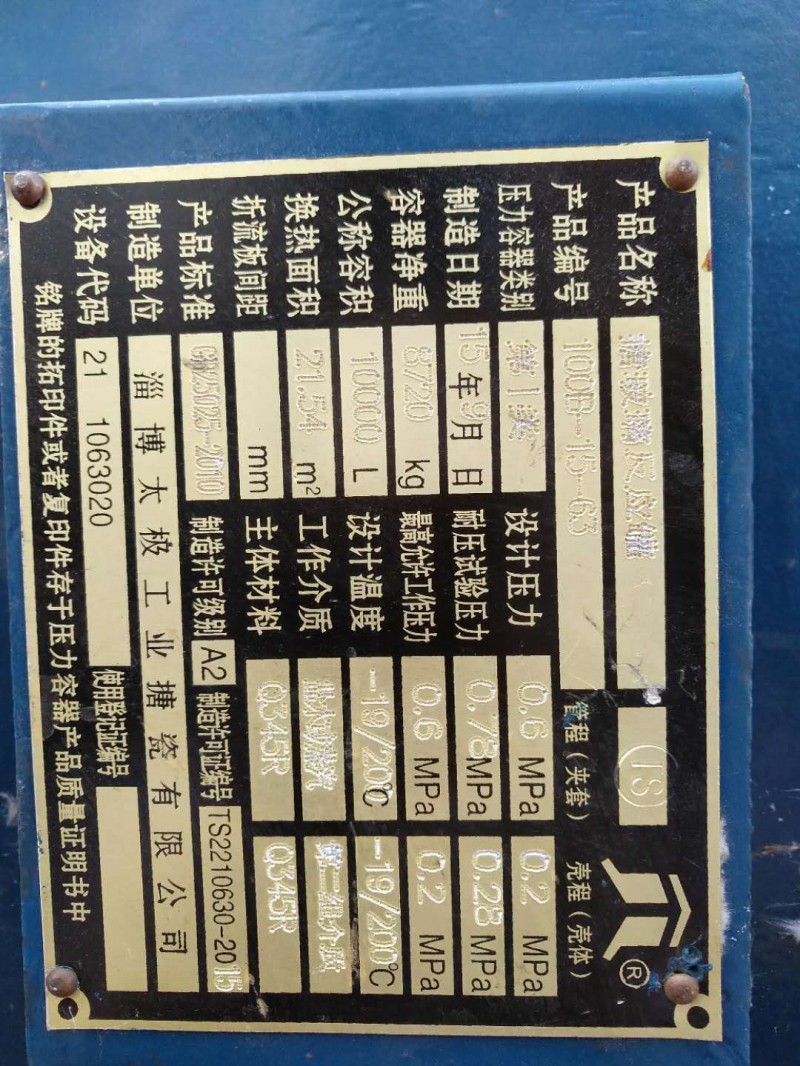 产品名称 搪玻璃反应罐 TS
产品编号 100B-15-63 管程(夹套) 壳程(壳体) ®
压力容器类别 第Ⅰ类 设计压力 0.6 MPa 0.2 MPa
制造日期 15年9月 日 耐压试验压力 0.78MPa 0.28 MPa
容器净重 8720 kg 最高允许工作压力 0.6 MPa 0.2 MPa
公称容积 10000 L 设计温度 -19/200℃ -19/200℃
换热面积 21.54 m² 工作介质 第二组介质
折流板间距 mm 主体材料 Q345R Q345R
产品标准 GB25025-2010 制造许可级别 A2 制造许可证编号 TS2210630-2015
制造单位 淄博太极工业搪瓷有限公司
设备代码 21 1063020 使用登记证编号
铭牌的拓印件或者复印件存于压力容器产品质量证明书中